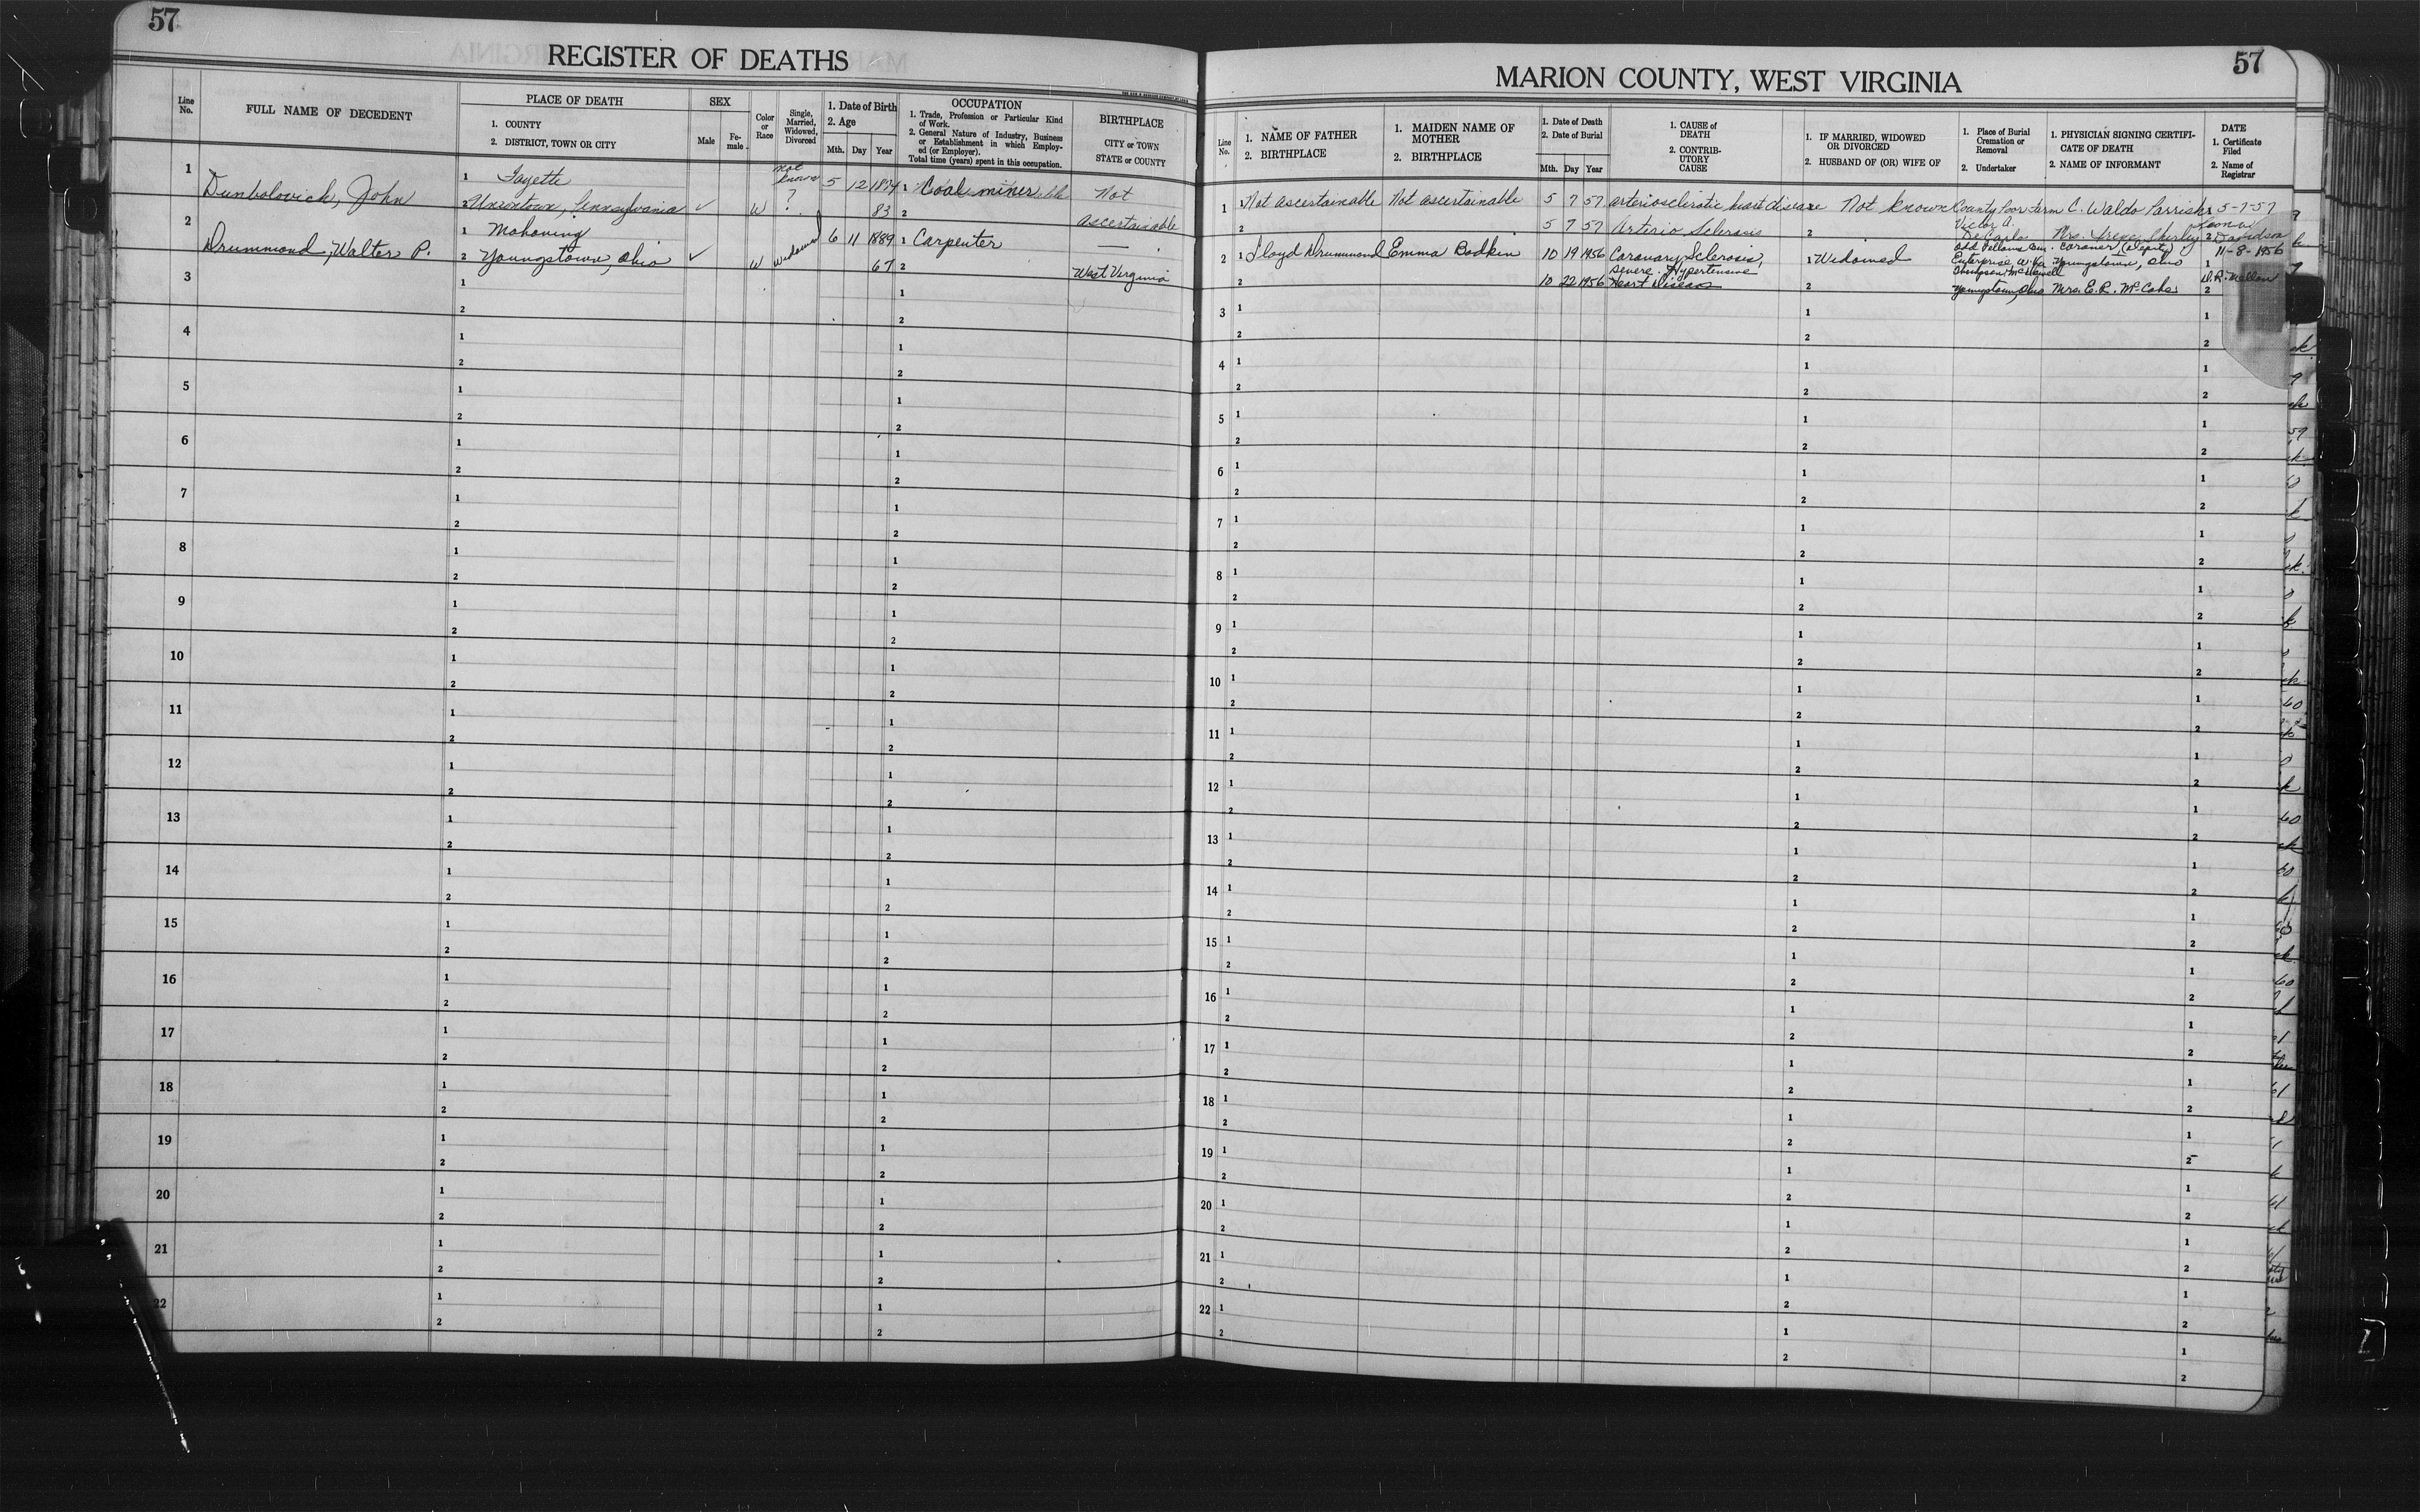 57
REGISTER OF DEATHS
Line No.
FULL NAME OF DECEDENT
PLACE OF DEATH
1. COUNTY
2. DISTRICT, TOWN OR CITY
SEX
Male
Female
Color or Race
Single, Married, Widowed, Divorced
1. Date of Birth
2. Age
Mth. Day Year
OCCUPATION
1. Trade, Profession or Particular Kind of Work.
2. General Nature of Industry, Business or Establishment in which Employed (or Employer).
Total time (years) spent in this occupation.
BIRTHPLACE
CITY or TOWN
STATE or COUNTY
1
Dunbolovich, John
1 Fayette
2 Uniontown, Pennsylvania
✓
W
not known ?
5 12 1874
83
1 Coal miner
2
Not ascertainable
2
Drummond, Walter P.
1 Mahoning
2 Youngstown, Ohio
✓
W
Widowed
6 11 1889
67
1 Carpenter
2
West Virginia
3
4
5
6
7
8
9
10
11
12
13
14
15
16
17
18
19
20
21
22
57
MARION COUNTY, WEST VIRGINIA
Line No.
1. NAME OF FATHER
2. BIRTHPLACE
1. MAIDEN NAME OF MOTHER
2. BIRTHPLACE
1. Date of Death
2. Date of Burial
Mth. Day Year
1. CAUSE of DEATH
2. CONTRIBUTORY CAUSE
1. IF MARRIED, WIDOWED OR DIVORCED
2. HUSBAND OF (OR) WIFE OF
1. Place of Burial Cremation or Removal
2. Undertaker
1. PHYSICIAN SIGNING CERTIFICATE OF DEATH
2. NAME OF INFORMANT
DATE
1. Certificate Filed
2. Name of Registrar
1
1 Not ascertainable
2
Not ascertainable
5 7 57
5 9 57
arteriosclerotic heart disease
Arterio Sclerosis
Not known
2
County Poor Farm
Victor A. DeCarlo
C. Waldo Parrish
Mrs. Irene
1 5-7-57
2 Davidson
2
1 Lloyd Drummond
2
Emma Bodkin
10 19 1956
10 22 1956
Coronary Sclerosis,
severe. Hypertensive
Heart Disease
1 Widowed
2
Odd Fellows Cem.
Enterprise W. Va
Thompson McDowell
Youngstown, Ohio
Coroner (Deputy)
Youngstown, Ohio
Mrs. E. R. McCabe
11-8-1956
1
2
3
4
5
6
7
8
9
10
11
12
13
14
15
16
17
18
19
20
21
22